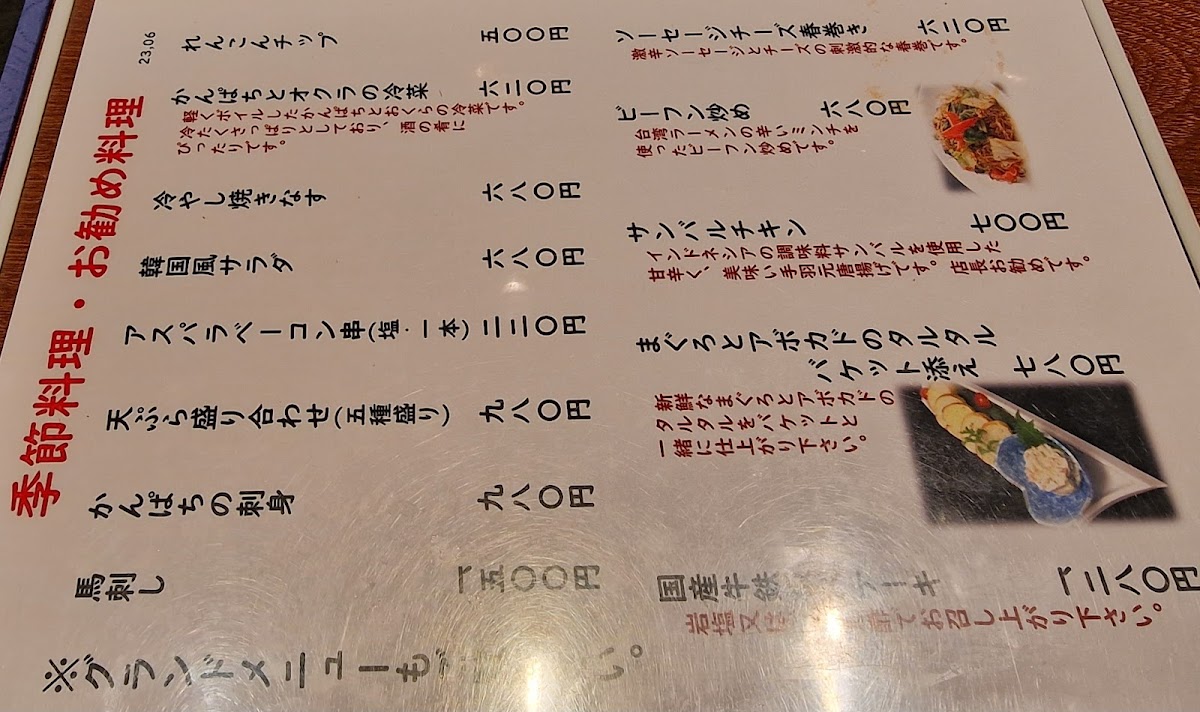 季節料理・お勧め料理
23.06
れんこんチップ 五〇〇円
かんぱちとオクラの冷菜 六二〇円
軽くボイルしたかんぱちとおくらの冷菜です。
冷たくさっぱりとしており、酒の肴に
ぴったりです。
冷やし焼きなす 六八〇円
韓国風サラダ 六八〇円
アスパラベーコン串(塩・一本) 二二〇円
天ぷら盛り合わせ(五種盛り) 九八〇円
かんぱちの刺身 九八〇円
馬刺し 一、五〇〇円
ソーセージチーズ春巻き 六二〇円
激辛ソーセージとチーズの刺激的な春巻です。
ビーフン炒め 六八〇円
台湾ラーメンの辛いミンチを
使ったビーフン炒めです。
サンバルチキン 七〇〇円
インドネシアの調味料サンバルを使用した
甘辛く、美味い手羽元唐揚げです。店長お勧めです。
まぐろとアボカドのタルタル
バケット添え 七八〇円
新鮮なまぐろとアボカドの
タルタルをバケットと
一緒に仕上がり下さい。
国産牛鉄 ーキ 一、二八〇円
岩塩又 でお召し上がり下さい。
※グランドメニューもご い。